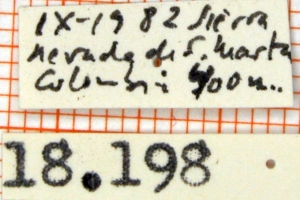 IX-1982 Sierra
nevada di S. Marta
Colombia 400 m.
18.198